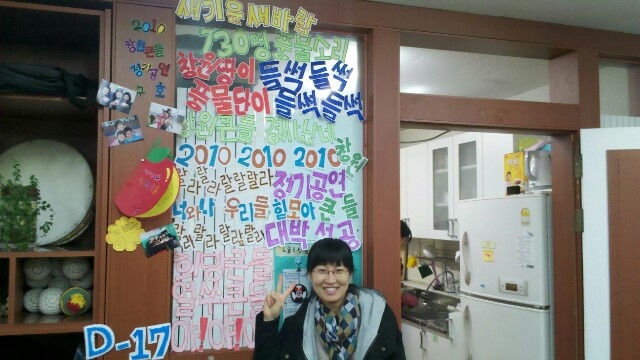 2010
창원큰들
정기공연
구호
새기운 새바람
730명 풍물소리
창원땅이 들썩 들썩
풍물단이 들썩 들썩
창원큰들 경사났네
2010 2010 2010 창원
정기공연
너와나 우리들 힘모아 큰들
대박 성공
야!야!야!
D-17